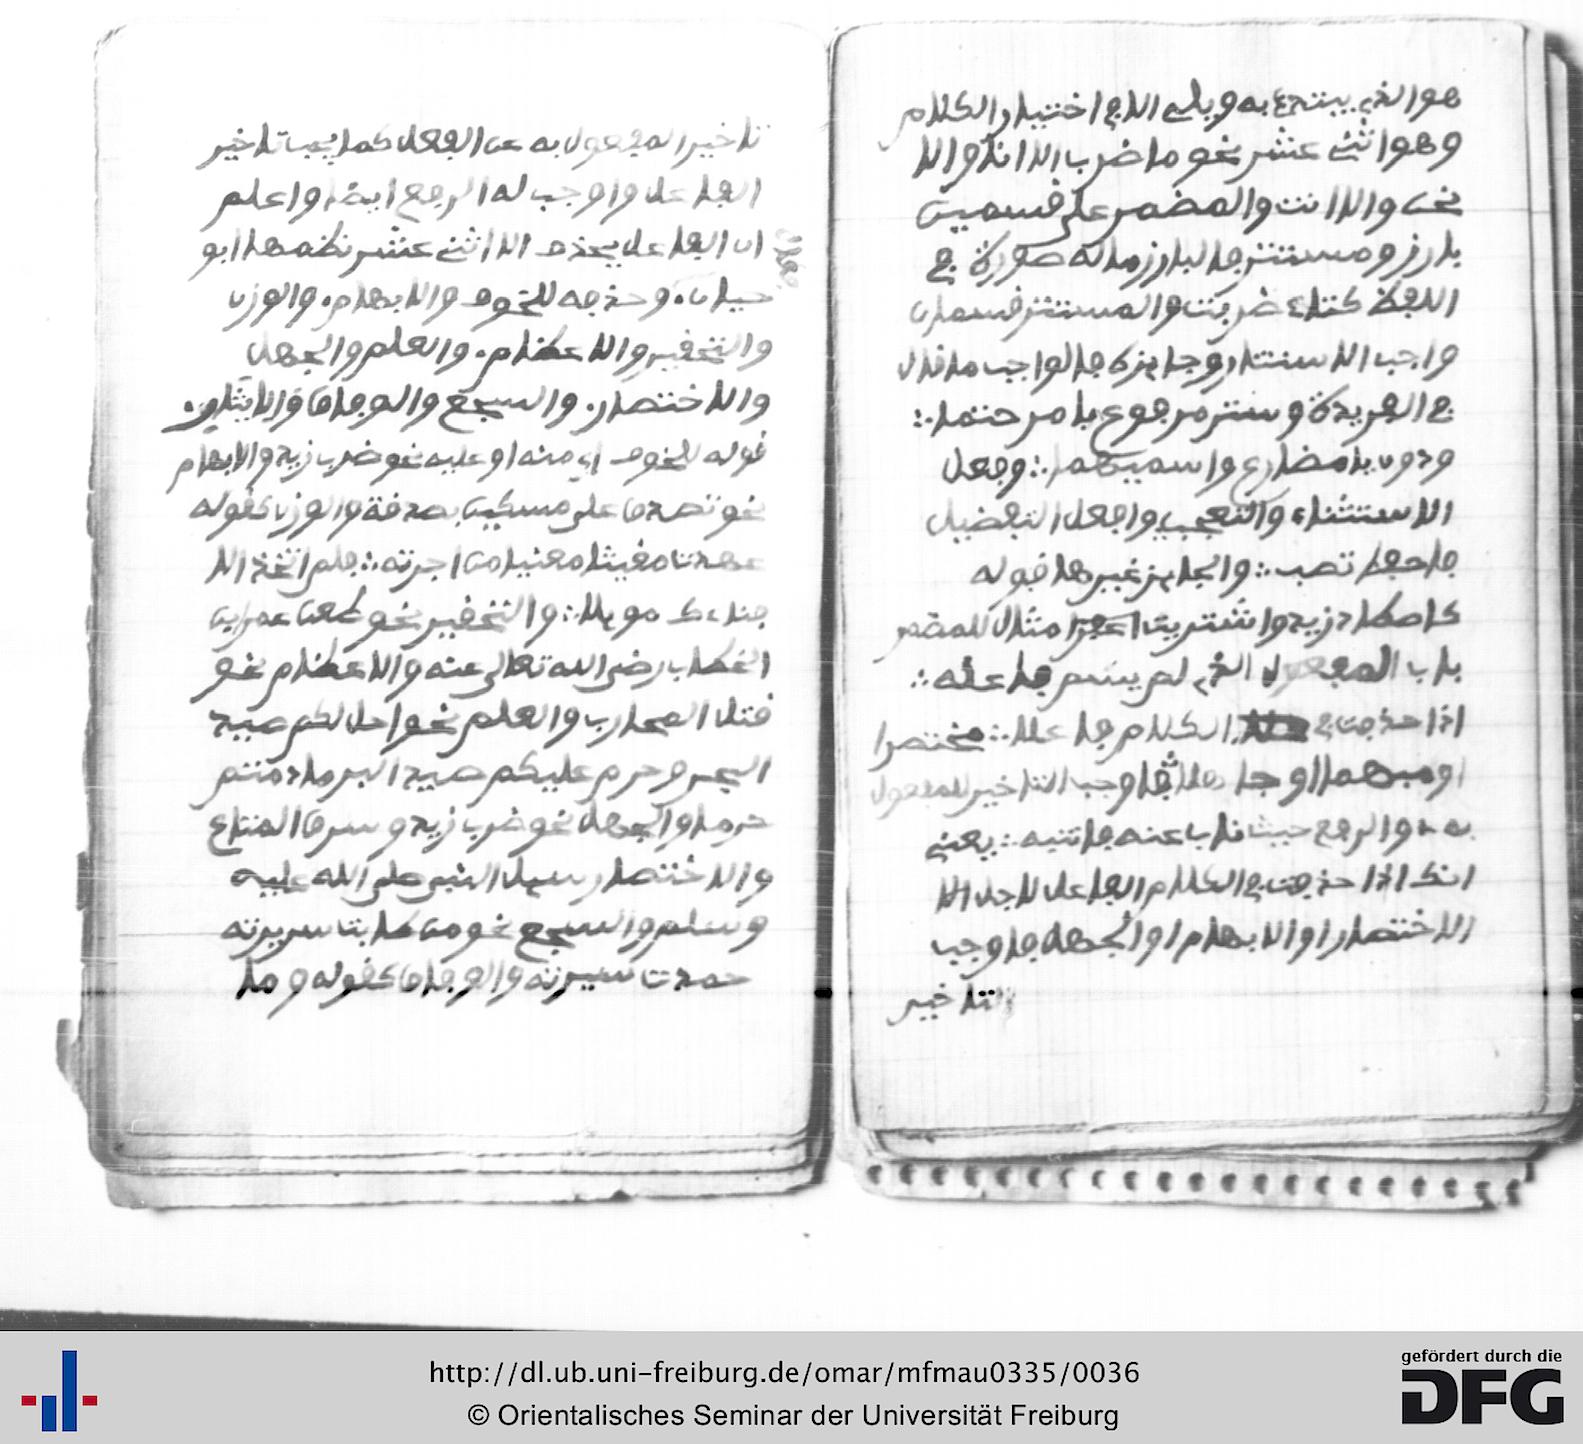 هو الذي يبتدئ به ويلي الا في اختيار الكلام
وهو اثني عشر نحو ما ضرب الا انا والا
نحن والا انت والمضمر على قسمين
بارز ومستتر فالبارز ماله صورة في
اللفظ كتاء ضربت والمستتر قسمان
واجب الاستتار وجايزه فالواجب ما قال
في الفريدة وستر مرفوع بامر حتما ∴
ودون يا مضارع واسميهما ∴ وفعل
الاستثناء والتعجب وافعل التفضيل
فاحفظ تصب ∴ والجايز غيرها قوله
كاصطاد زيد واشتريت اعفرا مثال للمضمر
باب المفعول الذي لم يسم فاعله ∴
اذا حذفت في الكلام فاعلا ∴ مختصرا
او مبهما او جاهلا فاوجب التاخير للمفعول
به ∴ والرفع حيث ناب عنه فانتبه ∴ يعني
انك اذا حذفت في الكلام الفاعل لاجل
الاختصار او الابهام او الجهل فاوجب
التاخير
تاخير المفعول به عن الفعل كما يجب تاخير
الفاعل واوجب له الرفع ايضا واعلم
ان الفاعل يحذف الا اثني عشر نظمها ابو
حيان ∴ وحذفه للخوف والابهام ∴ والوزن
والتحقير والاعظام ∴ والعلم والجهل
والاختصار ∴ والسجع والوفاق والايثار ∴
قوله للخوف اي منه او عليه نحو ضرب زيد والابهام
نحو تصدق على مسكين بصدقة والوزن كقوله
عهدت مغيثا مغنيا من اجرته ∴ فلم اتخذ الا
فناءك مويلا ∴ والتحقير نحو طعن عمر ابن
الخطاب رضي الله تعالى عنه والاعظام نحو
قتل المحارب والعلم نحو احل لكم صيد
البحر وحرم عليكم صيد البر ما دمتم
حرما والجهل نحو ضرب زيد وسرق المتاع
والاختصار سيل النبي صلى الله عليه
وسلم والسجع نحو من طابت سريرته
حمدت سيرته والوفاق كقوله وما
http://dl.ub.uni-freiburg.de/omar/mfmau0335/0036
© Orientalisches Seminar der Universität Freiburg
gefördert durch die
DFG